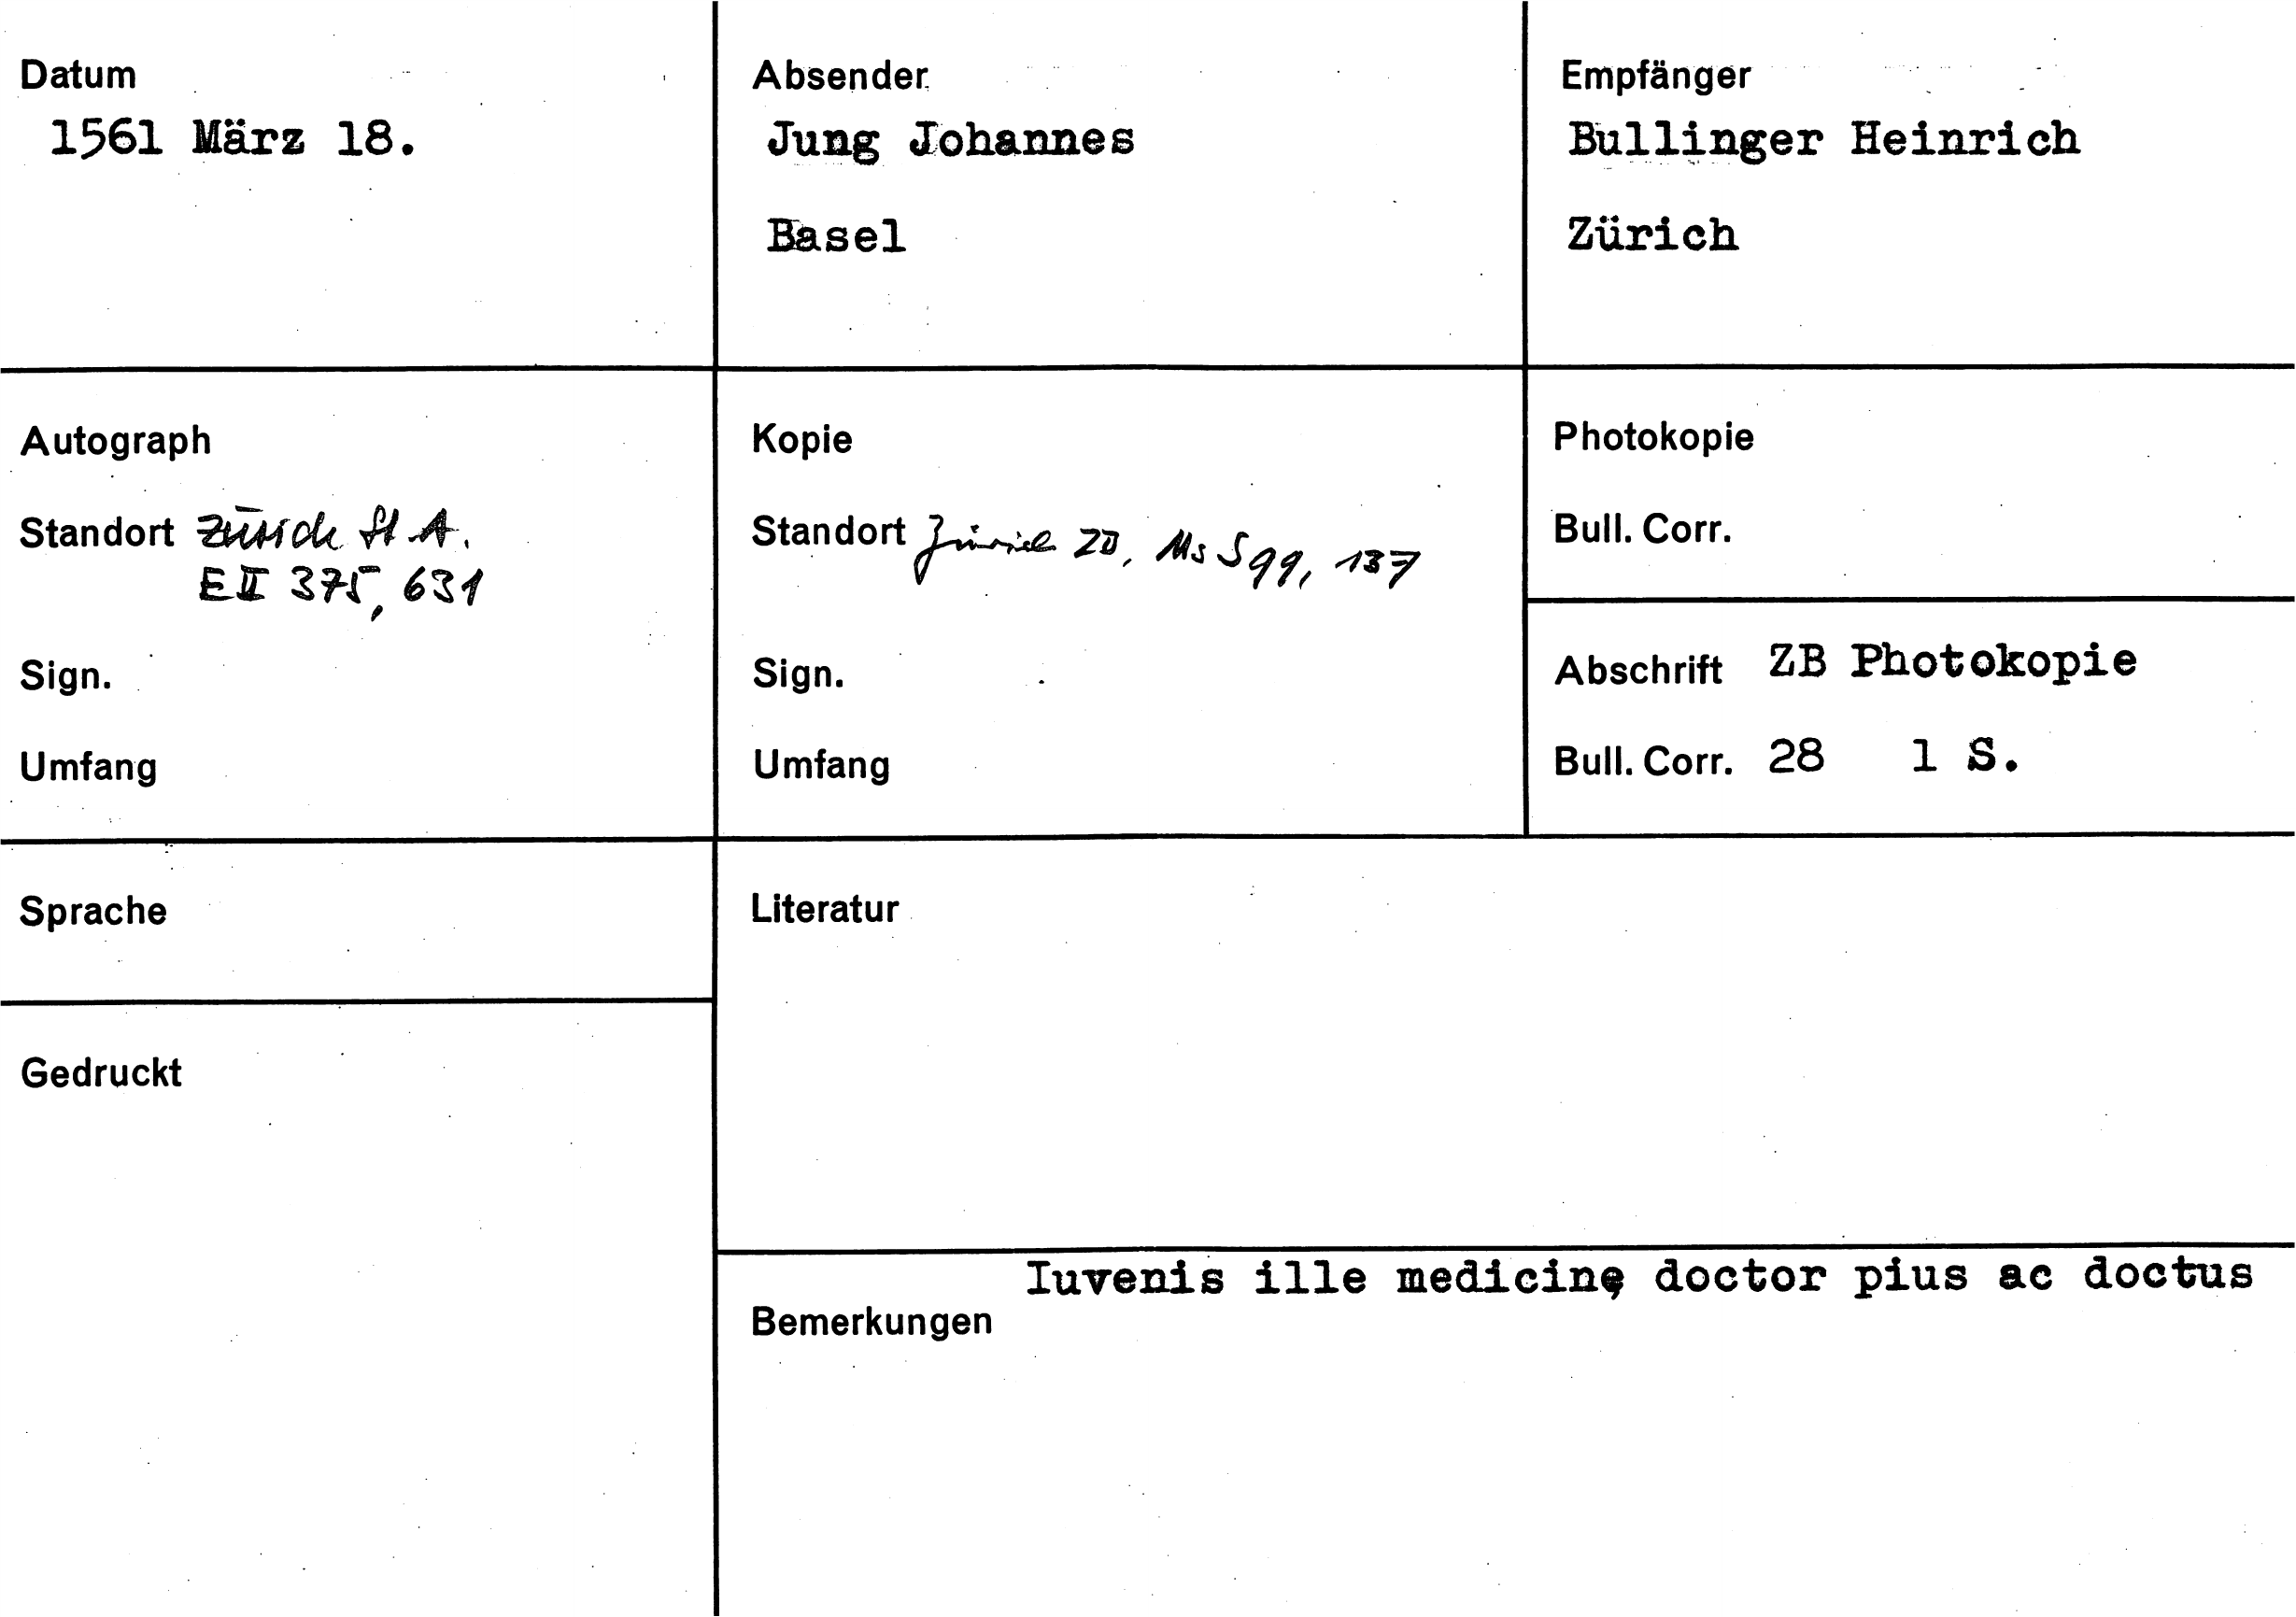 Datum
1561 März 18.
Absender
Jung Johannes
Basel
Empfänger
Bullinger Heinrich
Zürich
Autograph
Standort Zürich St.A.
E II 375, 631
Sign.
Umfang
Kopie
Standort Zürich ZB, Ms S 99, 137
Sign.
Umfang
Photokopie
Bull. Corr.
Abschrift ZB Photokopie
Bull. Corr. 28 1 S.
Sprache
Literatur
Gedruckt
Iuvenis ille medicinę doctor pius ac doctus
Bemerkungen